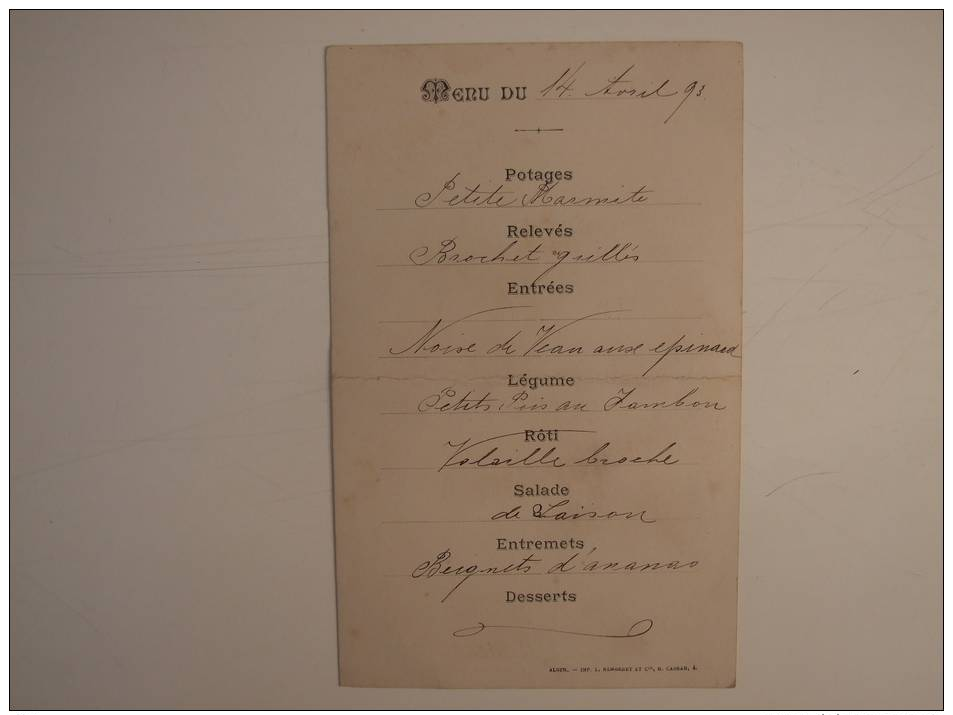 Menu du 14. Avril 93.
Potages
Petite Marmite
Relevés
Brochet grillés
Entrées
Noise de Veau aux epinard
Légume
Petits Pois au Jambon
Rôti
Volaille broche
Salade
de Saison
Entremets
Beignets d'ananas
Desserts
ALGER. — IMP. L. REMORDET ET Cie, R. CASBAH, 4.